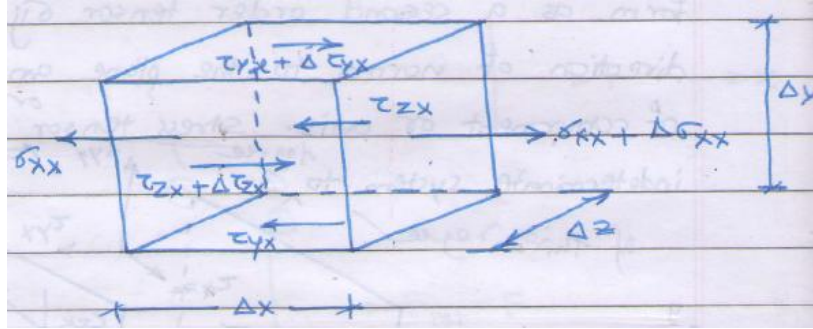 τyx + Δτyx
τzx
σxx
σxx + Δσxx
Δy
τzx + Δτzx
τyx
Δz
Δx